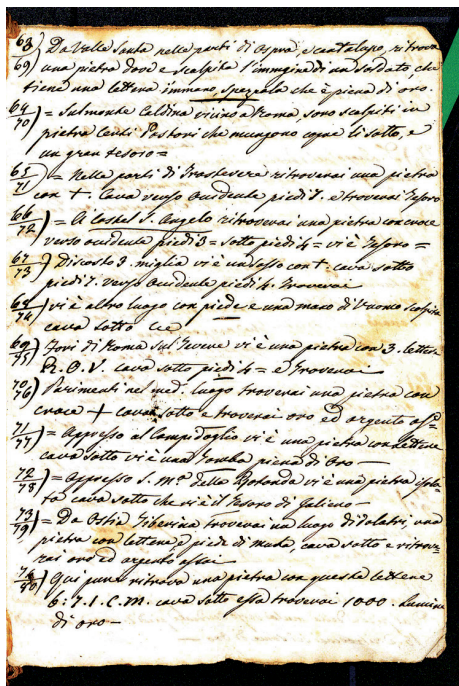 63/69) Da Valle Santa nelle parti di Ospra, e cantalupo, ritrova
una pietra dove è scolpita l'immagine di un Soldato, che
tiene una lettera in mano spezzola che è piena di oro.
64/70) = Sulmonte Caldina vicino a Roma, sono scolpiti in
pietra Pastori che mungono capre li sotto, e
un gran tesoro =
65/71) = Nelle parti di Trastevere ritroverai una pietra
con + Cava verso Occidente piedi 7. e troverai Tesoro
66/72) = A Castel S. Angelo ritroverai una pietra con croce
verso occidente piedi 3 = sotto piedi 4 = vi è Tesoro =
67/73) Discosto 3. miglia vi è un sasso con +. cava sotto
piedi 7. verso Occidente piedi 4. troverai
68/74) vi è altro luogo con piede e una mano d'Uomo scolpita
cava sotto
69/75) Fori di Roma sul Tevere vi è una pietra con 3. lettere
R. O. V. cava sotto piedi 4 = e troverai
70/76) Parimenti nel med. luogo troverai una pietra con
croce + cava sotto e troverai oro ed argento ass.
71/77) = Appresso al Campidoglio vi è una pietra con lettere
cava sotto vi è una Tomba piena di Oro —
72/78) = Appresso S. Mª. della Rotonda vi è una pietra
cava sotto che vi è il Tesoro di Galieno —
73/79) = Da Ostia Tiberina troverai un luogo d'Idolatri, una
pietra con lettere, piede di cava sotto e ritrove=
rai oro ed argento assai —
74/80) Qui pure ritrova una pietra con queste lettere
6: 7. I. C. M. cava sotto essa troverai 1000.
di oro —